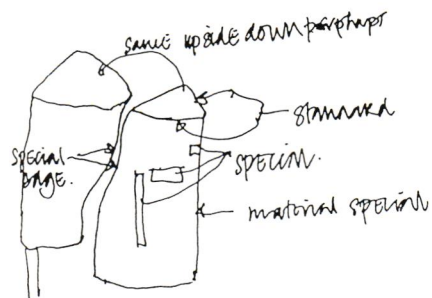 same upside down perphaps
standard
special
edge.
special.
material special